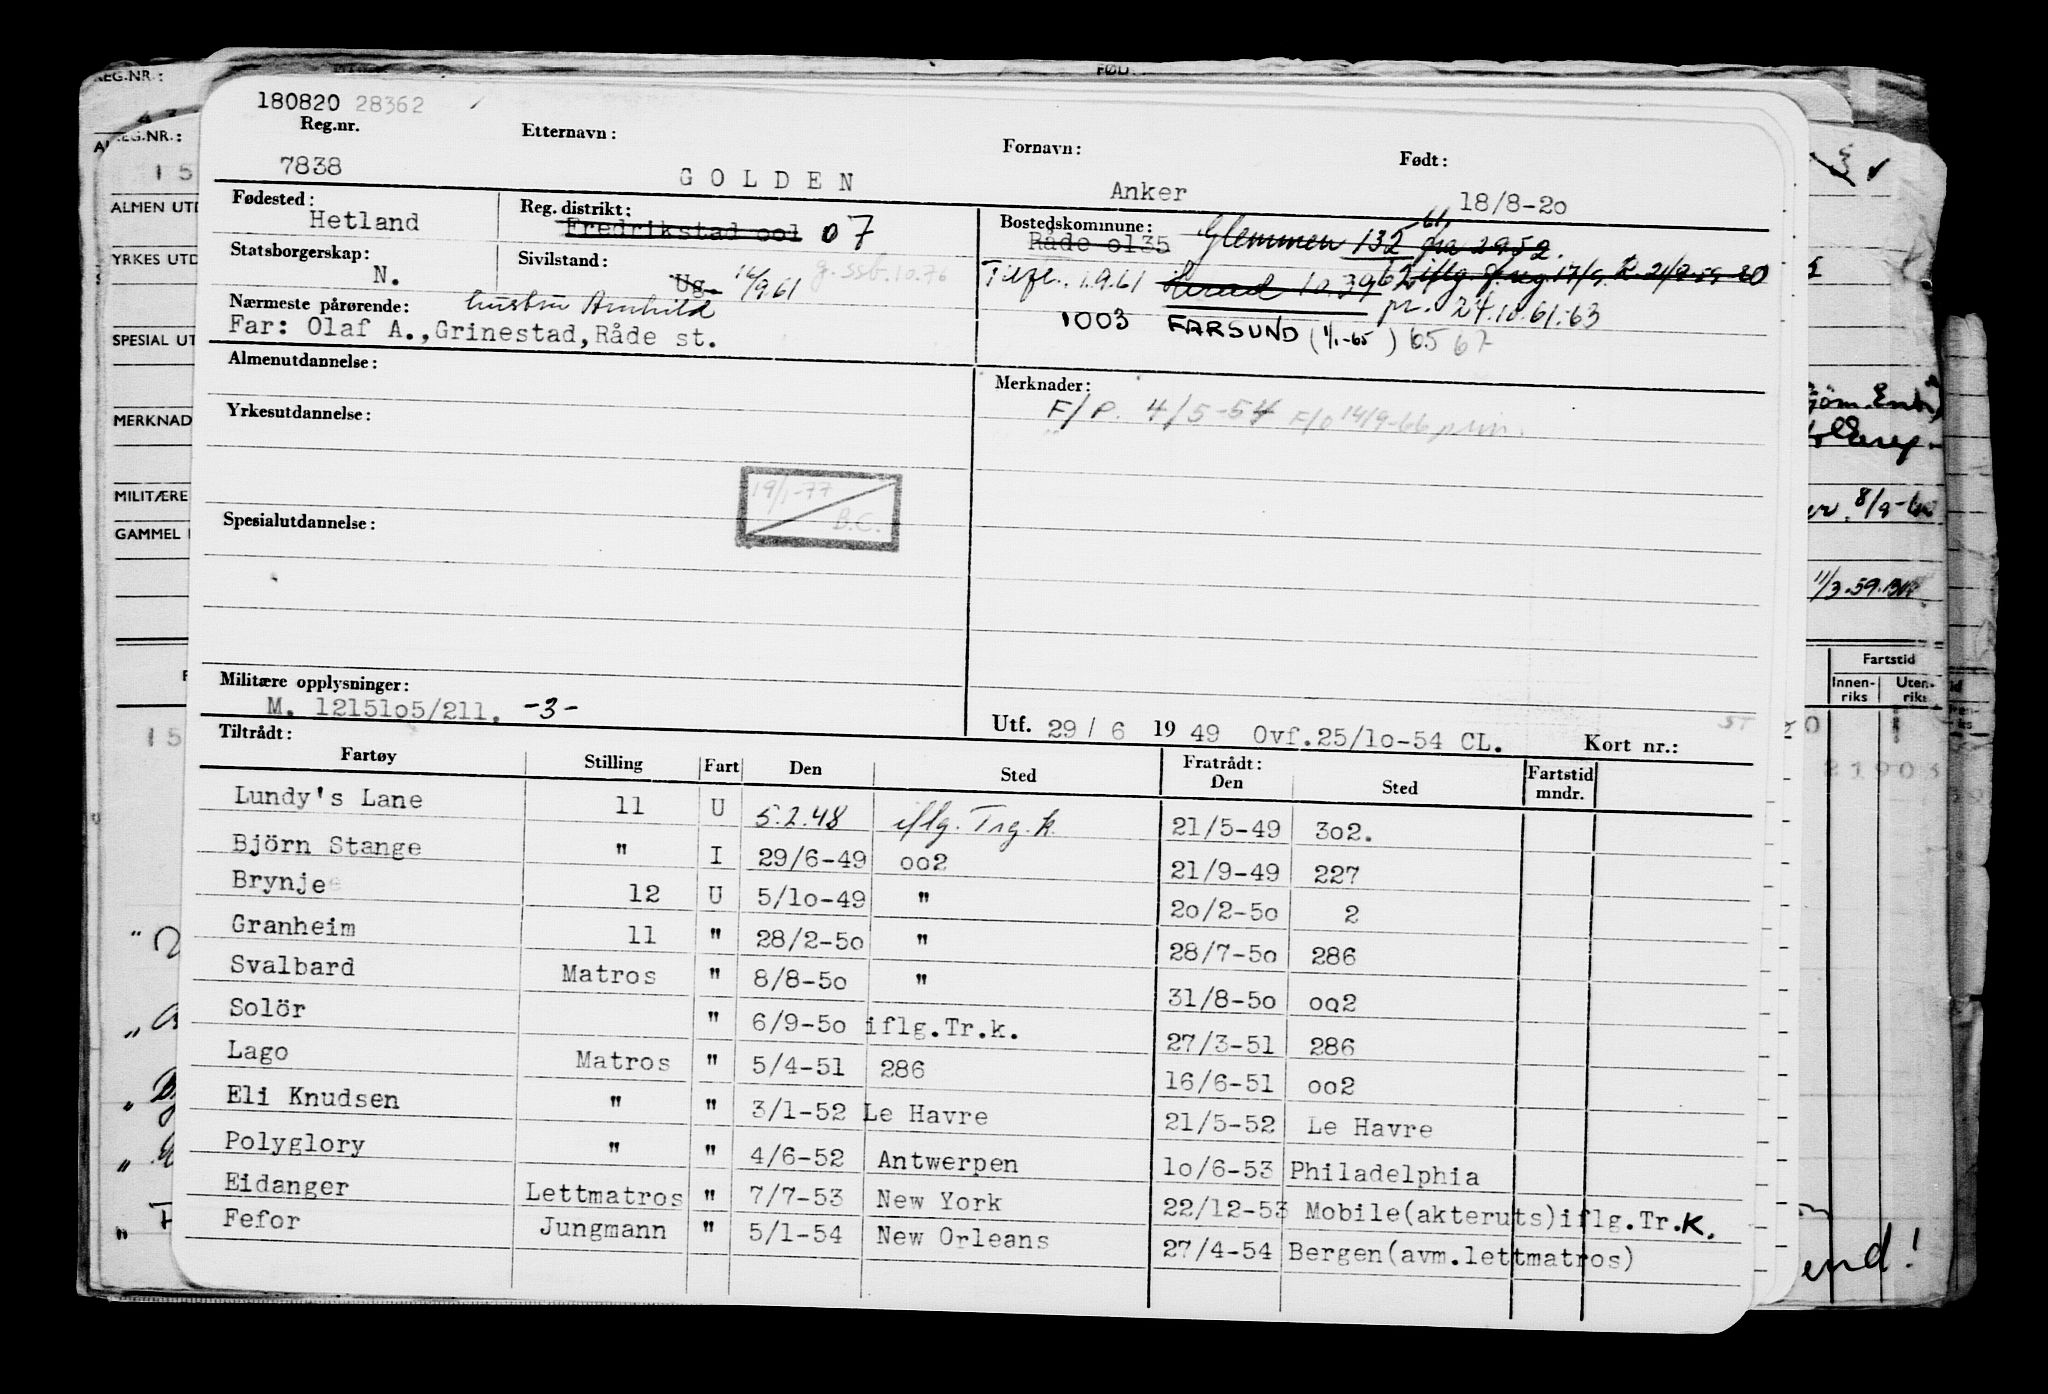 180820 28362
Reg.nr. Etternavn: Fornavn: Født:
7838 GOLDEN Anker 18/8-20
Fødested: Reg. distrikt: Bostedskommune:
Hetland Fredrikstad ool 07 Råde ol35 Glemmen 132 fra 2952.
Statsborgerskap: Sivilstand:
N. Ug. 14/9.61 g.ssb.10.76 Tilfl. 1.9.61 Herad 1039 62 iflg.
Nærmeste pårørende: hustru Arnhild pr. 24.10.61.63
Far: Olaf A.,Grinestad,Råde st. 1003 FARSUND (1/1-65) 65 67
Almenutdannelse: Merknader:
F/P. 4/5-54 F/O 14/9-66 prim.
Yrkesutdannelse:
19/1-77
B.C.
Spesialutdannelse:
Militære opplysninger:
M. 12151o5/211. -3-
Utf. 29 / 6 19 49 Ovf.25/lo-54 CL. Kort nr.:
Tiltrådt: Fratrådt:
Fartøy Stilling Fart Den Sted Den Sted Fartstid mndr.
Lundy's Lane 11 U 5.2.48 iflg. Trg.k. 21/5-49 3o2.
Björn Stange " I 29/6-49 oo2 21/9-49 227
Brynje 12 U 5/lo-49 " 2o/2-5o 2
Granheim 11 " 28/2-5o " 28/7-5o 286
Svalbard Matros " 8/8-5o " 31/8-5o oo2
Solör " 6/9-5o iflg.Tr.k. 27/3-51 286
Lago Matros " 5/4-51 286 16/6-51 oo2
Eli Knudsen " " 3/1-52 Le Havre 21/5-52 Le Havre
Polyglory " " 4/6-52 Antwerpen lo/6-53 Philadelphia
Eidanger Lettmatros " 7/7-53 New York 22/12-53 Mobile(akteruts)iflg.Tr.K.
Fefor Jungmann " 5/1-54 New Orleans 27/4-54 Bergen(avm.lettmatros)
REG.NR.:
REG.NR.:
15
ALMEN UTD
YRKES UTD
SPESIAL UT
MERKNAD
MILITÆRE
GAMMEL
15
FØD.
8/9-60
11/3.59.
Fartstid
Innen-riks Uten-riks
21903
end!